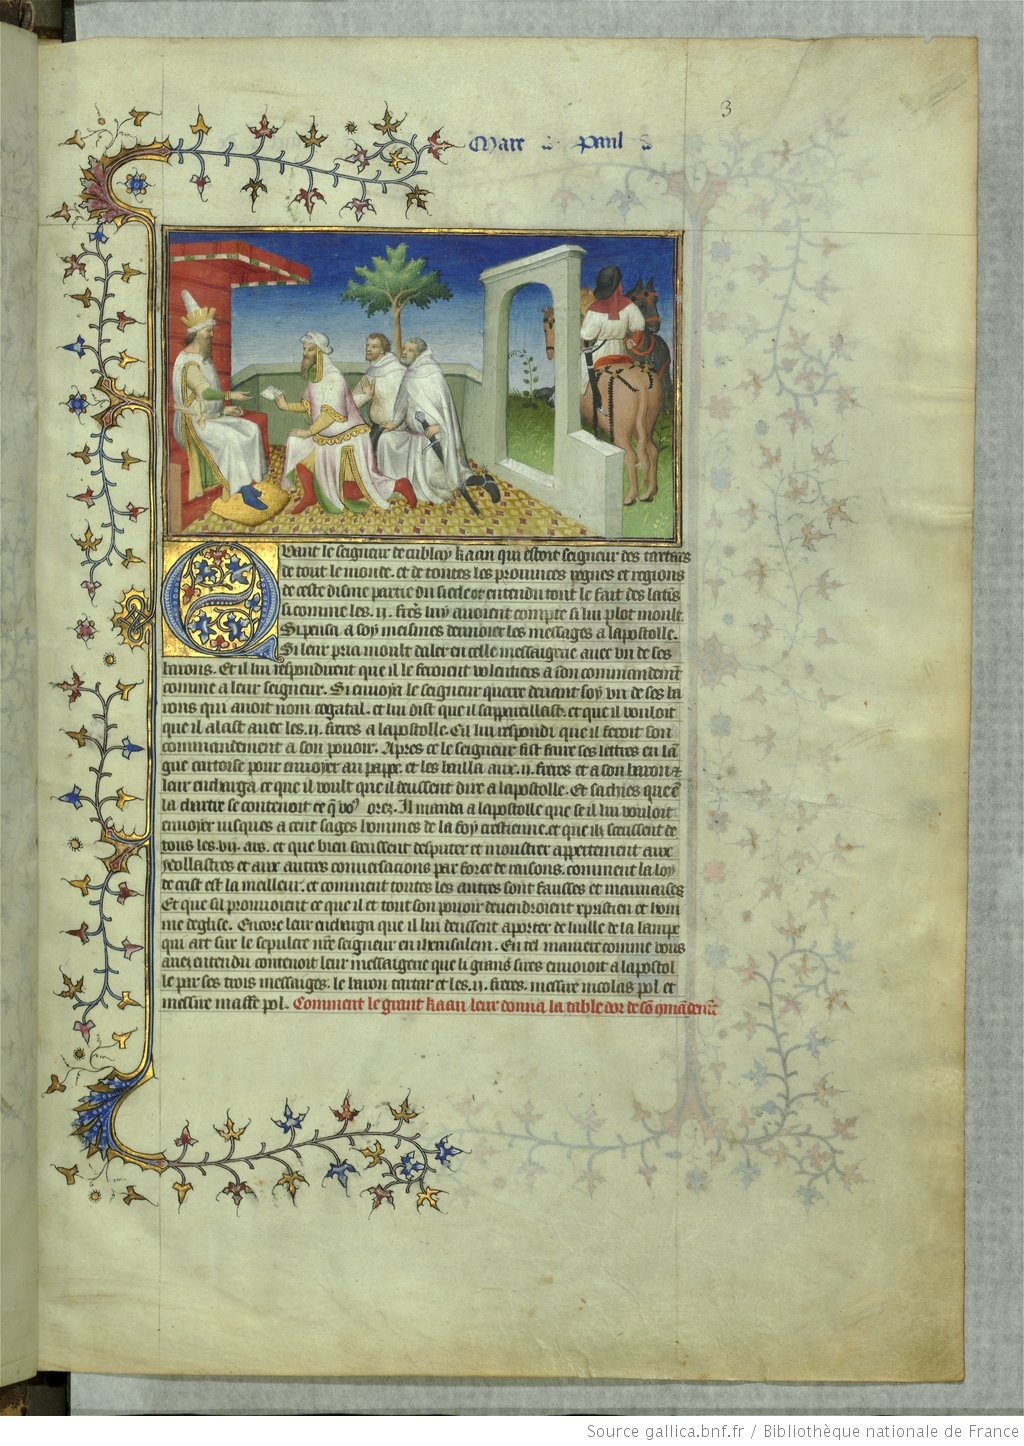 3
Marc Paul
Quant le seigneur de cublay kaan qui estoit seigneur des tartars
de tout le monde. et de toutes les prouinces regnes et regions
de ceste disme partie du siecle ot entendu tout le fait des latins
si comme les .ii. freres luy auoient compte si lui plot moult.
Si pensa a soy meismes denuoier les messages a lapostolle.
Si leur pria moult daler en celle messaigrie auec vn de ses
barons. Et il lui respondirent que il le feroient volentiers a son commandement
comme a leur seigneur. Si enuoya le seigneur querre deuant soy vn de ses ba
rons qui auoit nom cogatal. et lui dist que il sappareillast. et que il vouloit
que il alast auec les .ii. freres a lapostolle. Cil lui respondi que il feroit son
commandement a son pouoir. Apres ce le seigneur fist faire ses lettres en lan
gue tartoise pour enuoyer au pappe. et les bailla aux .ii. freres et a son baron et
leur encharga ce que il voult que il deussent dire a lapostolle. Et sachies que en
la chartre se contenoit ce que vous orez. Il manda a lapostolle que se il lui vouloit
enuoyer iusques a cent sages hommes de la foy crestienne. et que ilz sceussent de
tous les .vii. ars. et que bien sceussent desputer et monstrer appertement aux
ydollastres et aux autres conuersacions par force de raisons. comment la loy
de crist est la meilleur. et comment toutes les autres sont fausses et mauuaises
Et que sil prouuoient ce que il et tout son pouoir deuendroient xpristien et hom
me deglise. Encore leur encharga que il lui deussent aporter de luille de la lampe
qui art sur le sepulcre nre seigneur en iherusalem. En tel maniere comme vous
auez entendu contenoit leur messaigerie que li grans sires enuoioit a lapostol
le par ses trois messaiges. le baron tartar et les .ii. freres. messire nicolas pol et
messire maffe pol. Comment le grant kaan leur donna la table dor de son commandement
Source gallica.bnf.fr / Bibliothèque nationale de France